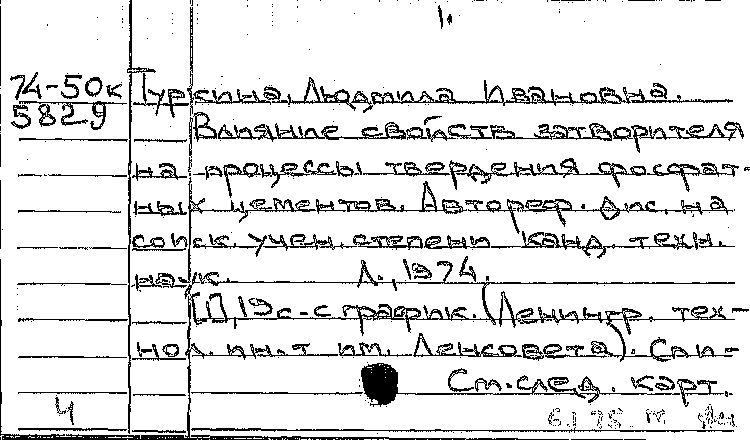 1.
74-50к Туркина, Людмила Ивановна.
5829
Влияние свойств затворителя
на процессы твердения фосфат-
ных цементов. Автореф. дис. на
соиск. учен. степени канд. техн.
наук. Л., 1974.
[1], 19 с. с график. (Ленингр. тех-
нол. ин-т им. Ленсовета). Спи-
См. след. карт.
4